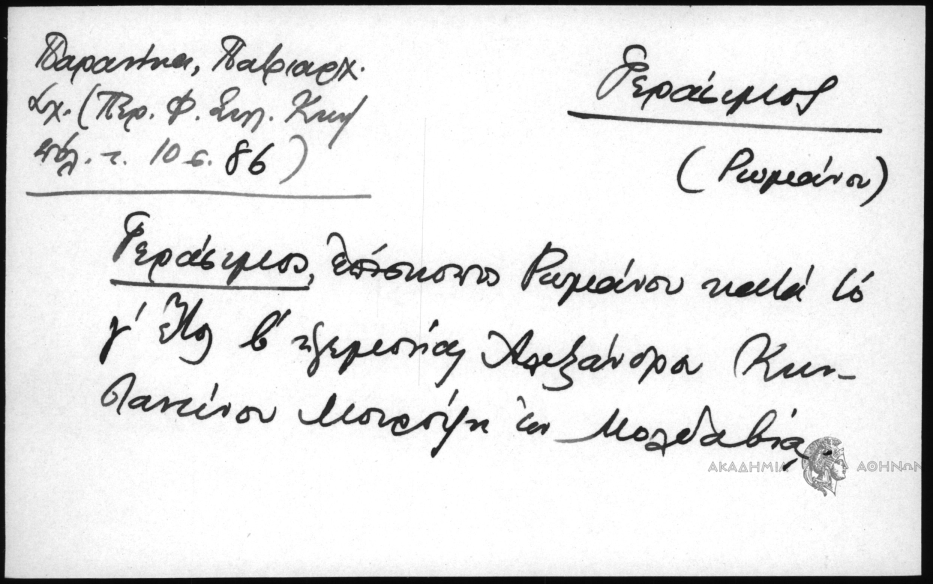 Παρανίκα, Πατριαρχ.
Σχ. (Περ. Φ. Συλ. Κων)
πόλ. τ. 10 σ. 86)
Γεράσιμος
(Ρωμάνου)
Γεράσιμος, ἐπίσκοπος Ρωμάνου κατά τό
γ' ἔτος β' ἡγεμονίας Ἀλεξάνδρου Κων-
σταντίνου Μουρούζη ἐν Μολδαβίᾳ.
ΑΚΑΔΗΜΙΑ ΑΘΗΝΩΝ